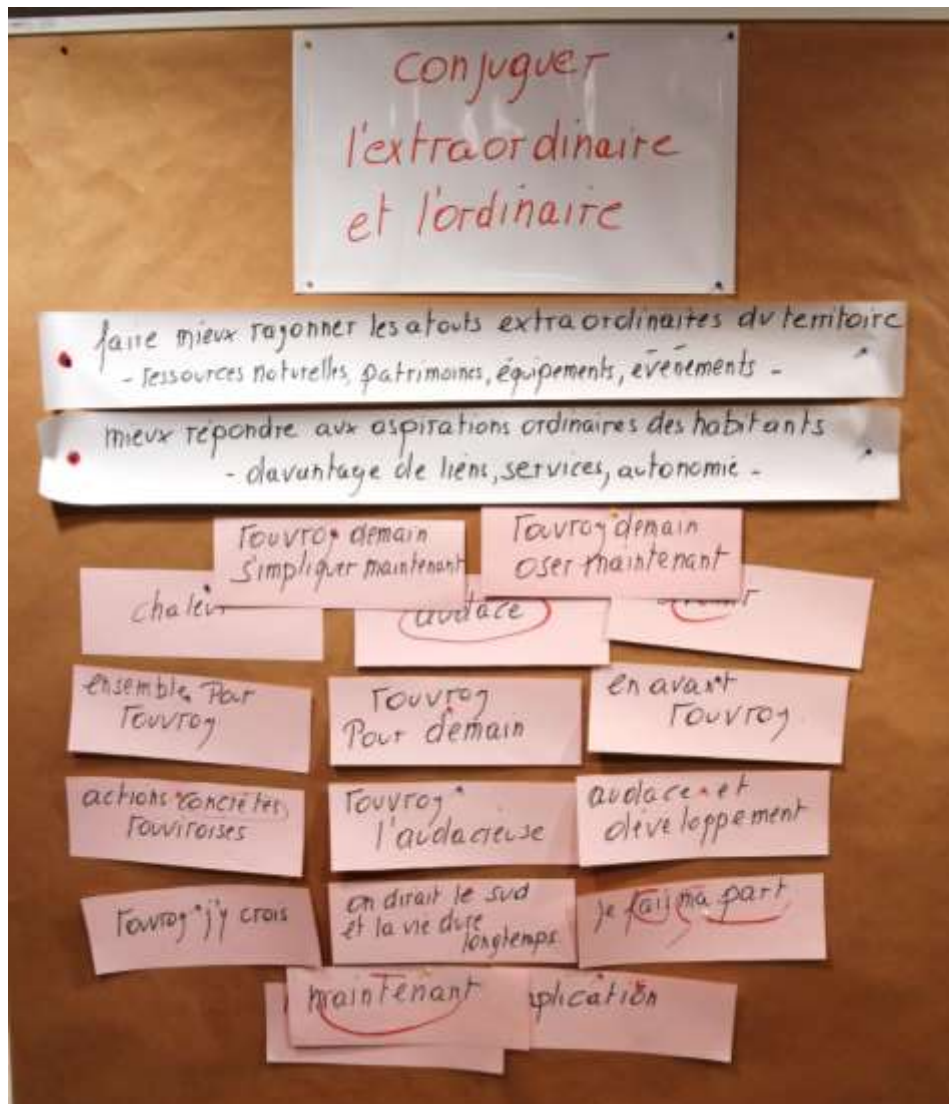 conjuguer
l'extraordinaire
et l'ordinaire
faire mieux rayonner les atouts extraordinaires du territoire
- ressources naturelles, patrimoines, équipements, événements -
mieux répondre aux aspirations ordinaires des habitants
- davantage de liens, services, autonomie -
rouvroy demain
s'impliquer maintenant
rouvroy demain
oser maintenant
audace
ensemble pour
rouvroy
rouvroy
Pour demain
en avant
rouvroy
actions concrètes
rouviroises
rouvroy
l'audacieuse
audace et
developpement
rouvroy j'y crois
on dirait le sud
et la vie dure
longtemps
je fais ma part
maintenant
plication